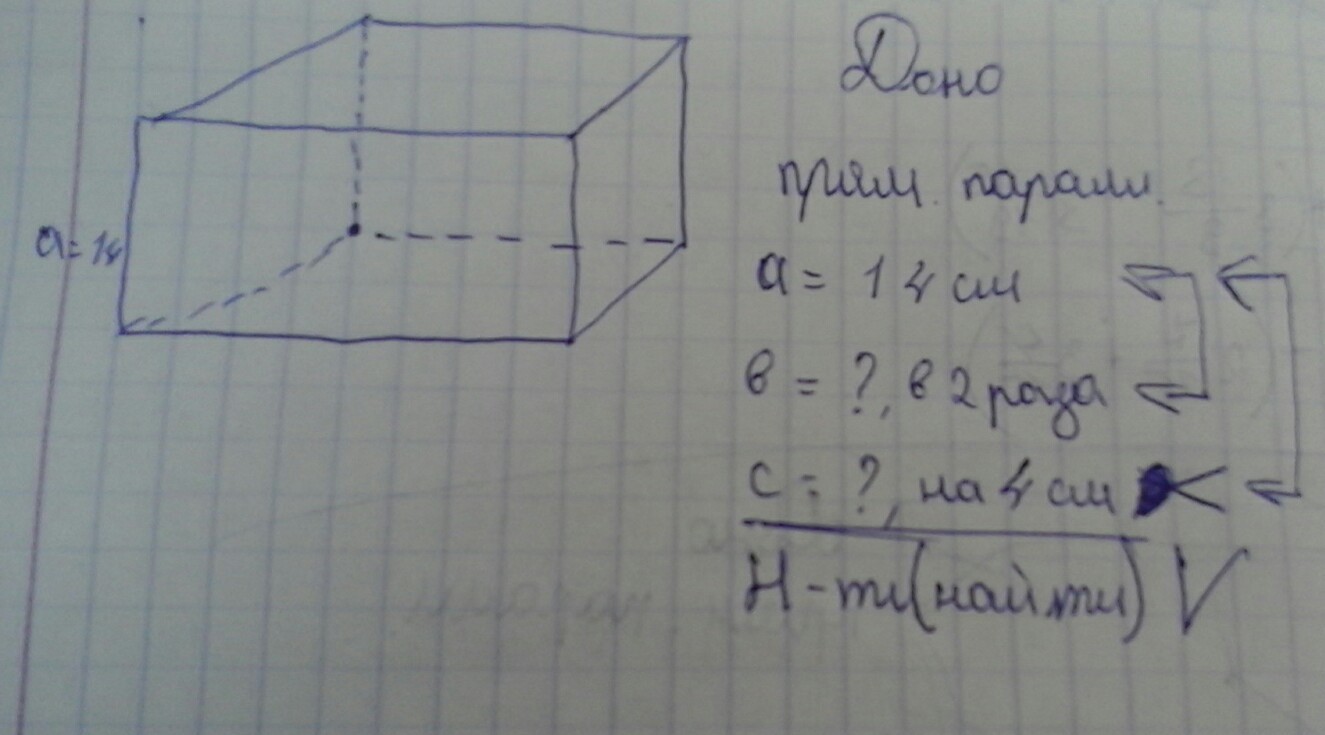 Дано
прям. паралл.
a = 14
a = 14 см
в = ?, в 2 раза
c = ?, на 4 см <
Н-ти(найти) V